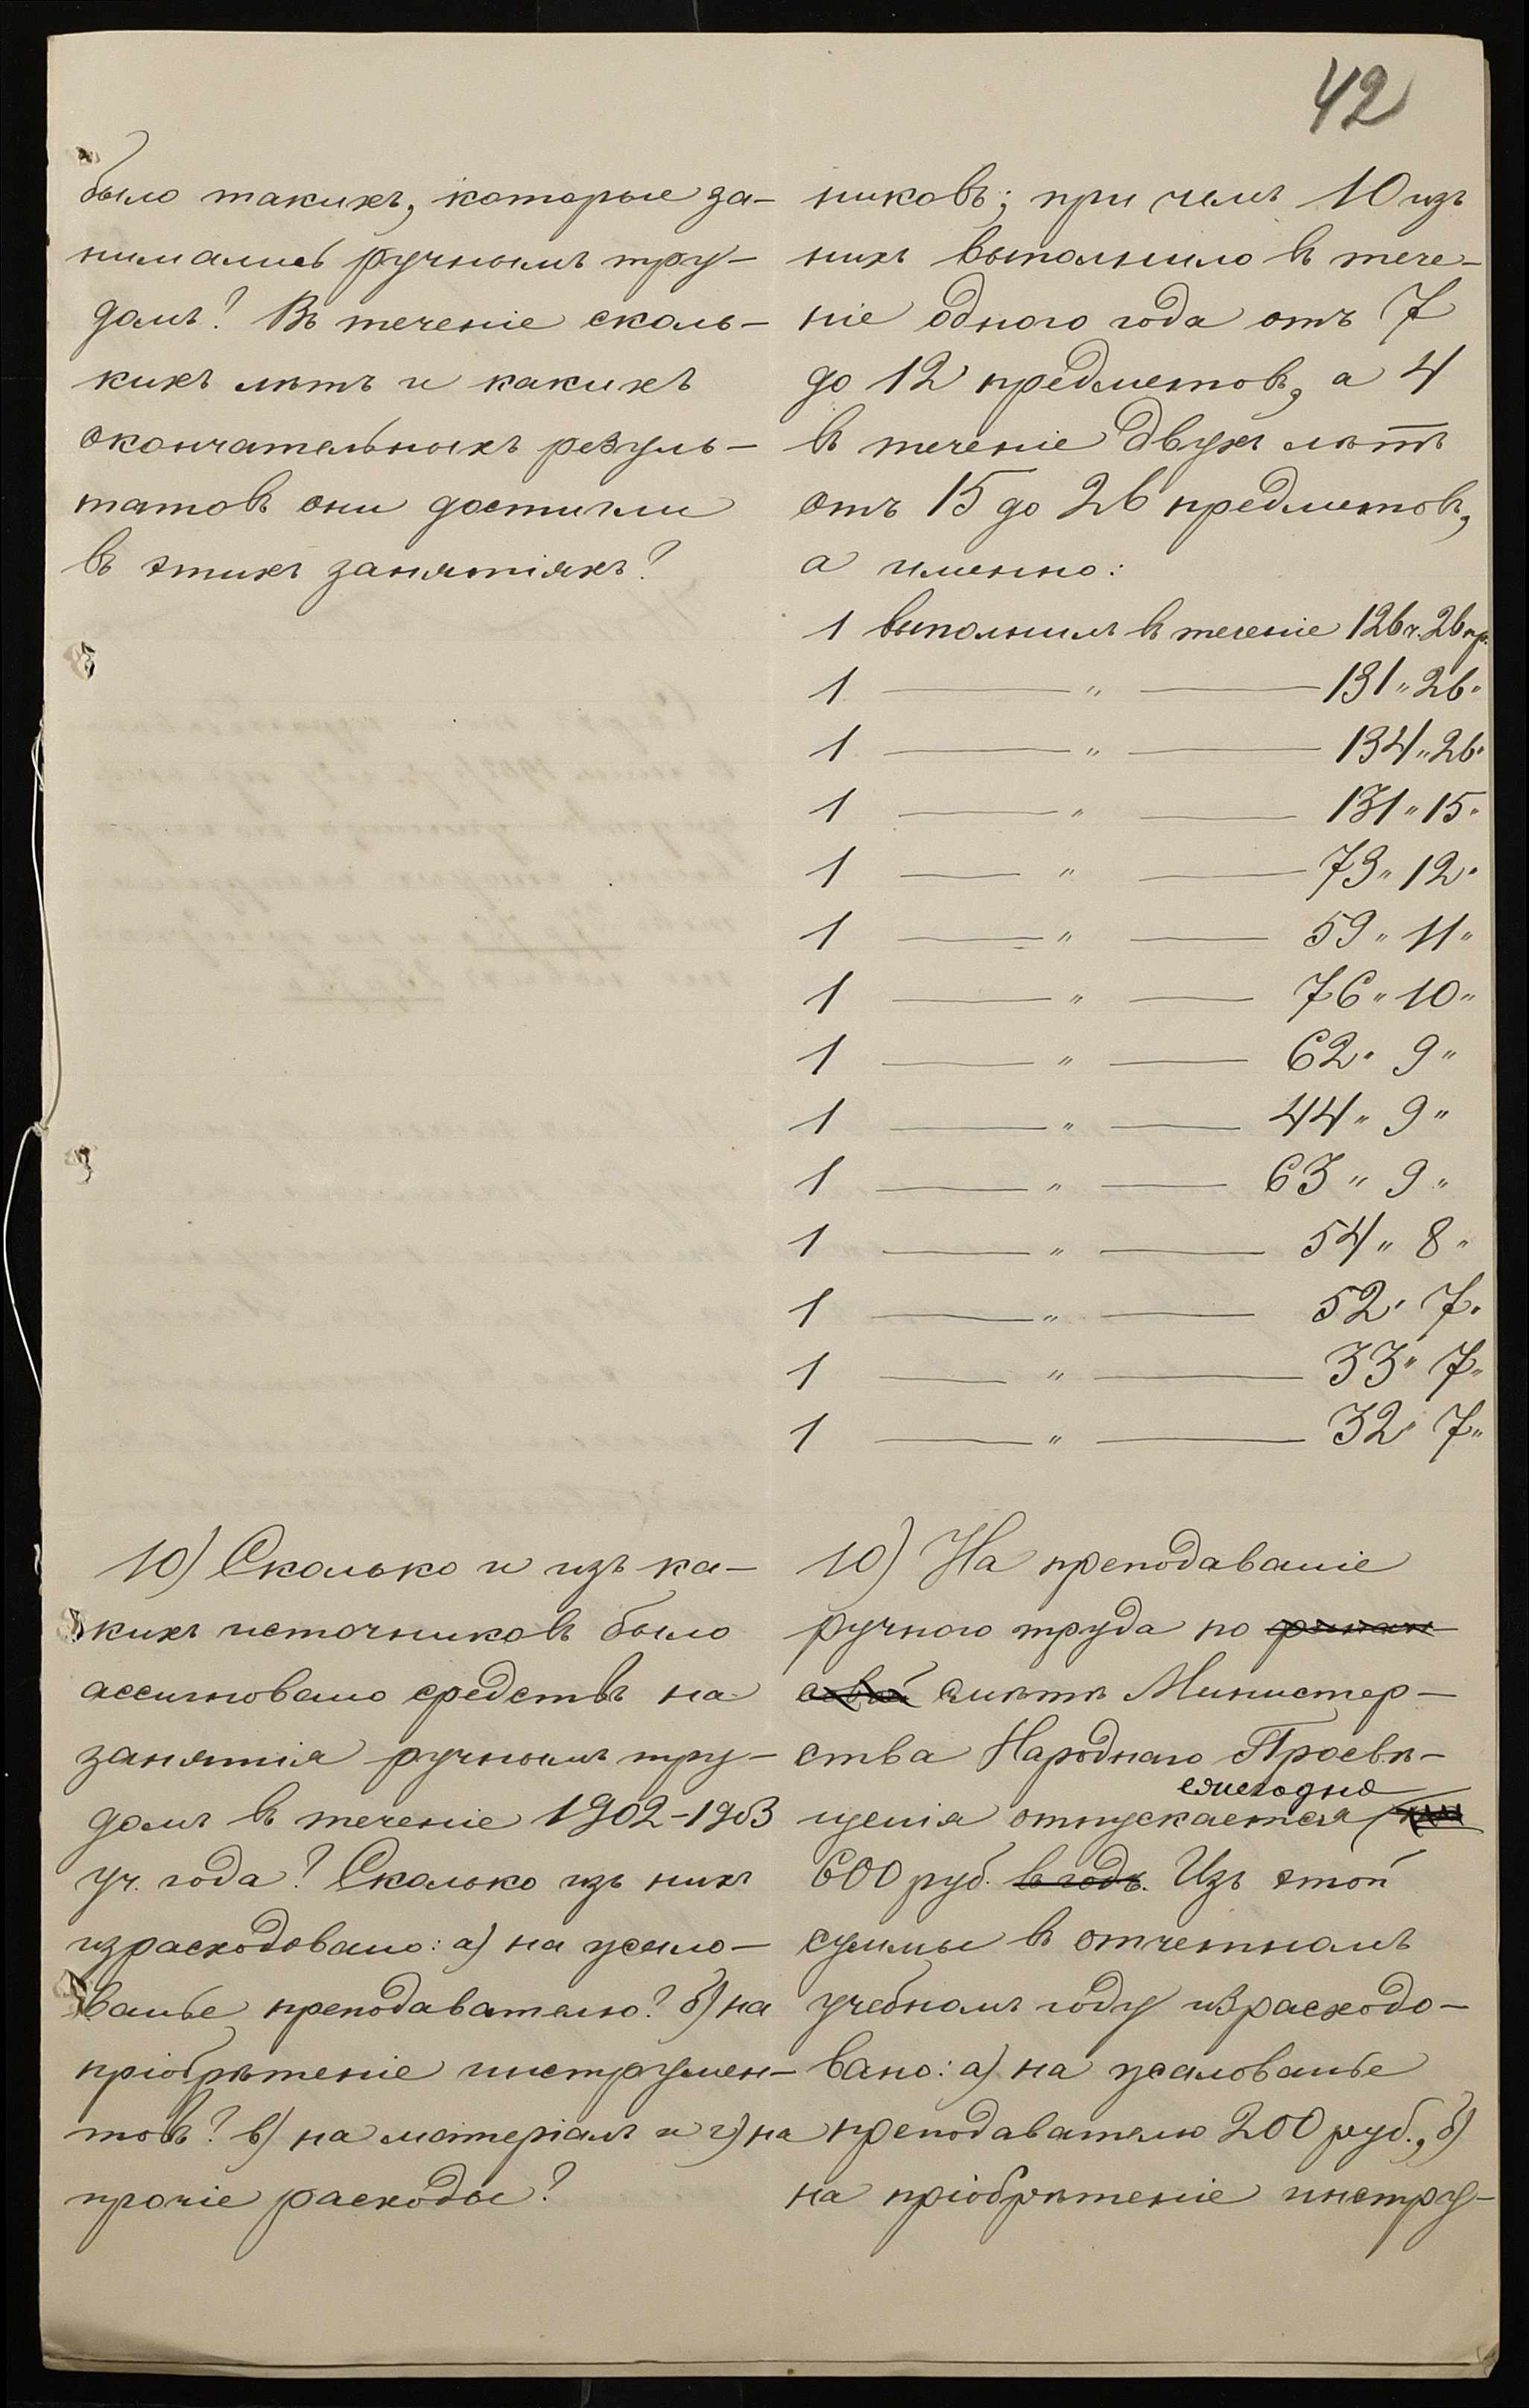 42
было такихъ, которые за-
нимались ручнымъ тру-
домъ? Въ теченіе сколь-
кихъ лѣтъ и какихъ
окончательныхъ резуль-
татовъ они достигли
въ этихъ занятіяхъ?
никовъ; при чемъ 10 изъ
нихъ выполнило въ тече-
ніе одного года отъ 7
до 12 предметовъ, а 4
въ теченіе двухъ лѣтъ
отъ 15 до 26 предметовъ,
а именно:
1 выполнилъ въ теченіе 126 ч. 26 пр.
1 — " — 131 " 26 "
1 — " — 134 " 26 "
1 — " — 131 " 15 "
1 — " — 73 " 12 "
1 — " — 59 " 11 "
1 — " — 76 " 10 "
1 — " — 62 " 9 "
1 — " — 44 " 9 "
1 — " — 63 " 9 "
1 — " — 54 " 8 "
1 — " — 52 " 7 "
1 — " — 33 " 7 "
1 — " — 32 " 7 "
10) Сколько и изъ ка-
кихъ источниковъ было
ассигновано средствъ на
занятія ручнымъ тру-
домъ въ теченіе 1902-1903
уч. года? Сколько изъ нихъ
израсходовано: а) на жало-
ванье преподавателю? б) на
пріобрѣтеніе инструмен-
товъ? в) на матеріалъ и г) на
прочіе расходы?
10) На преподаваніе
ручного труда по
смѣтѣ Министер-
ства Народнаго Просвѣ-
ежегодно
щенія отпускается
600 руб. въ годъ. Изъ этой
суммы въ отчетномъ
учебномъ году израсходо-
вано: а) на жалованье
преподавателю 200 руб., б)
на пріобрѣтеніе инстру-